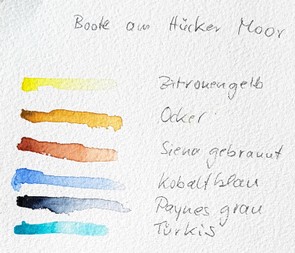 Boote am Hücker Moor
Zitronengelb
Ocker
Siena gebrannt
Kobaltblau
Paynes grau
Türkis